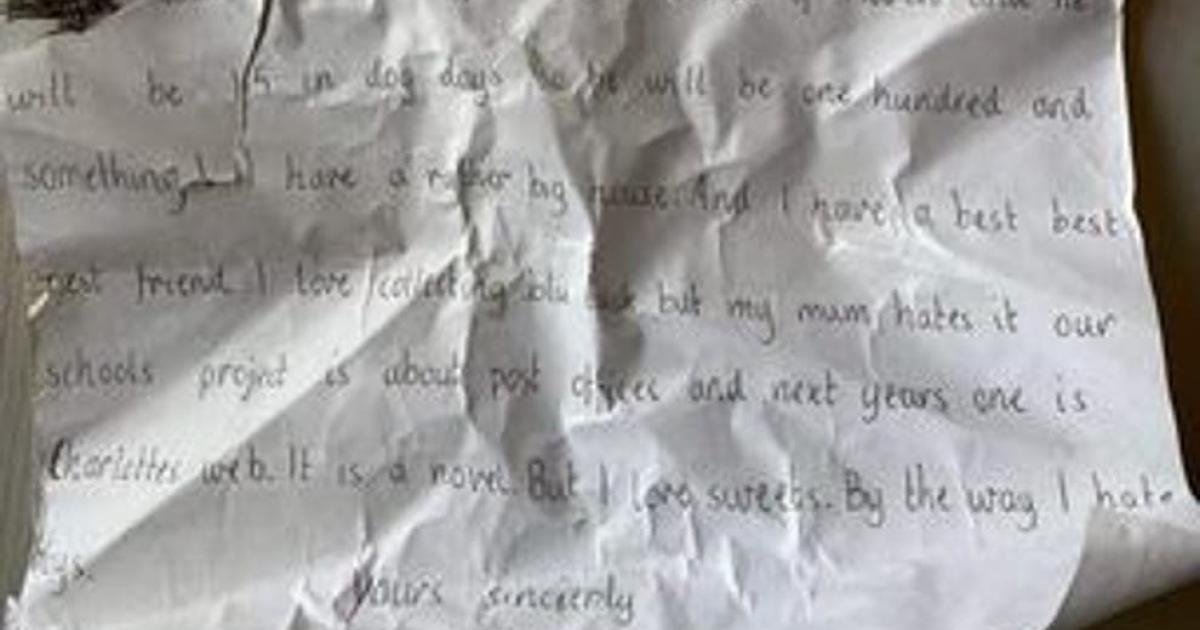 he
will be 15 in dog days so he will be one hundred and
something I have a rather big house. And I have a best best
best friend I love collecting blu but my mum hates it our
schools project is about post offices and next years one is
Charlottes web. It is a novel. But I love sweets. By the way I hate
yours sincerly